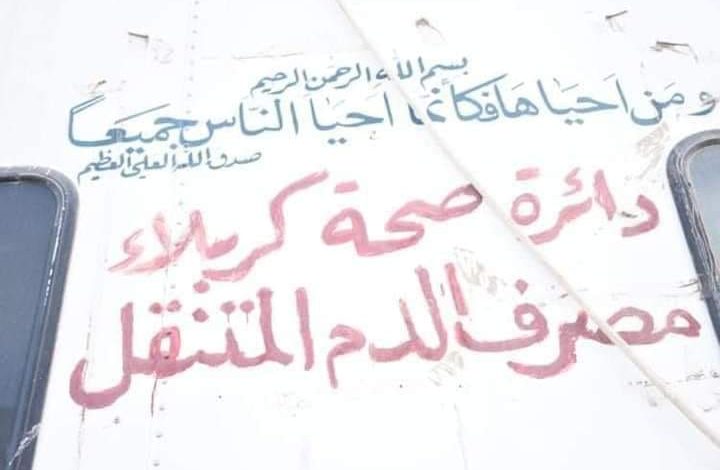 بسم الله الرحمن الرحيم
ومن احياها فكأنما احيا الناس جميعاً
صدق الله العلي العظيم
دائرة صحة كربلاء
مصرف الدم المتنقل